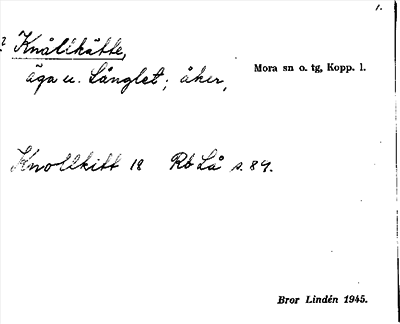 1.
? Knålihätte,
äga u. Långlet; åker,
Mora sn o. tg, Kopp. l.
Knollkitt 18 Rb Lå s. 89.
Bror Lindén 1945.